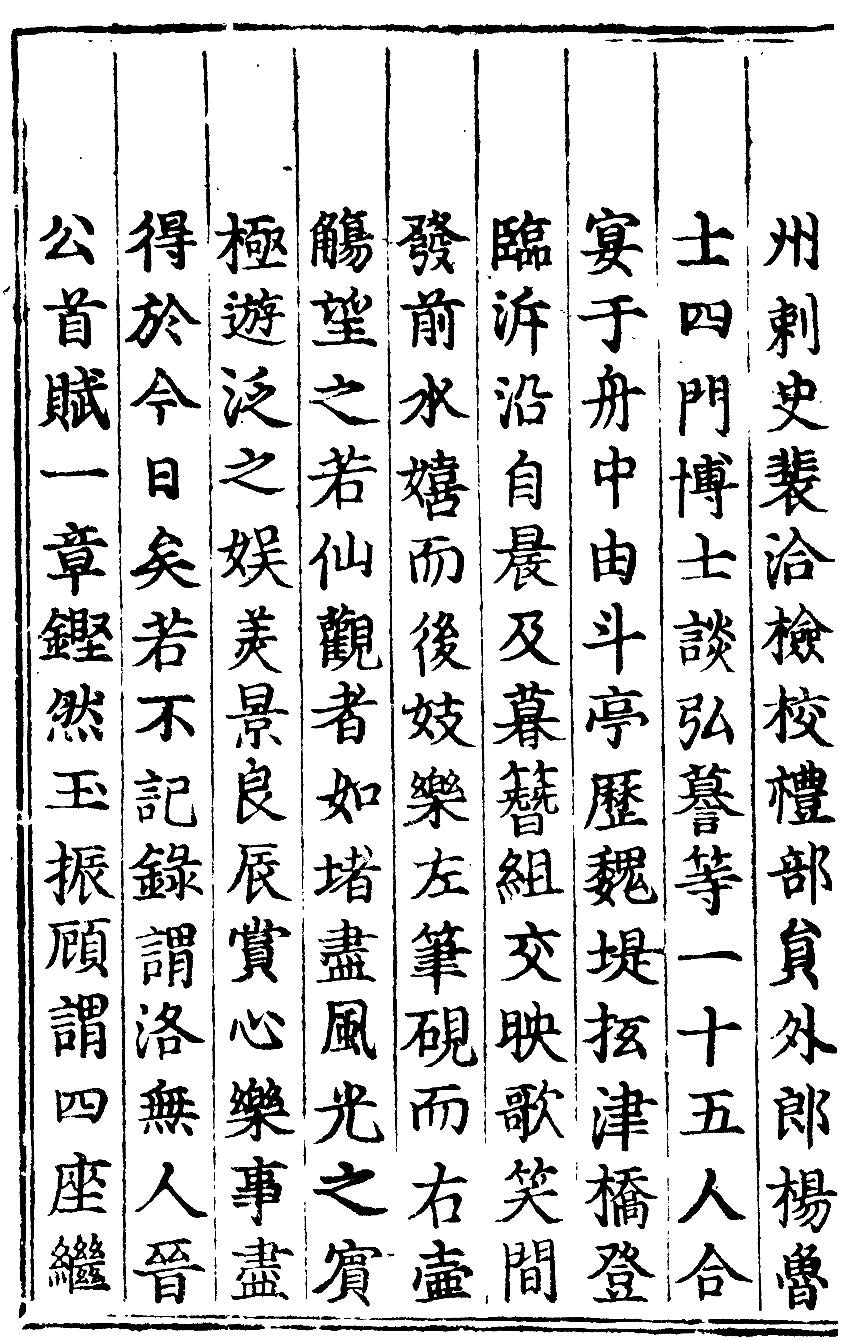 州刺史裴洽檢校禮部貟外郎楊魯
士四門博士談弘謩等一十五人合
宴于舟中由斗亭歷魏堤抎津橋登
臨泝沿自晨及暮簪組交映歌笑間
發前水嬉而後妓樂左筆硯而右壷
觴望之若仙觀者如堵盡風光之賔
極遊泛之娱羙景良辰賞心樂事盡
得於今日矣若不記錄謂洛無人晉
公首賦一章鏗然玉振顧謂四座繼